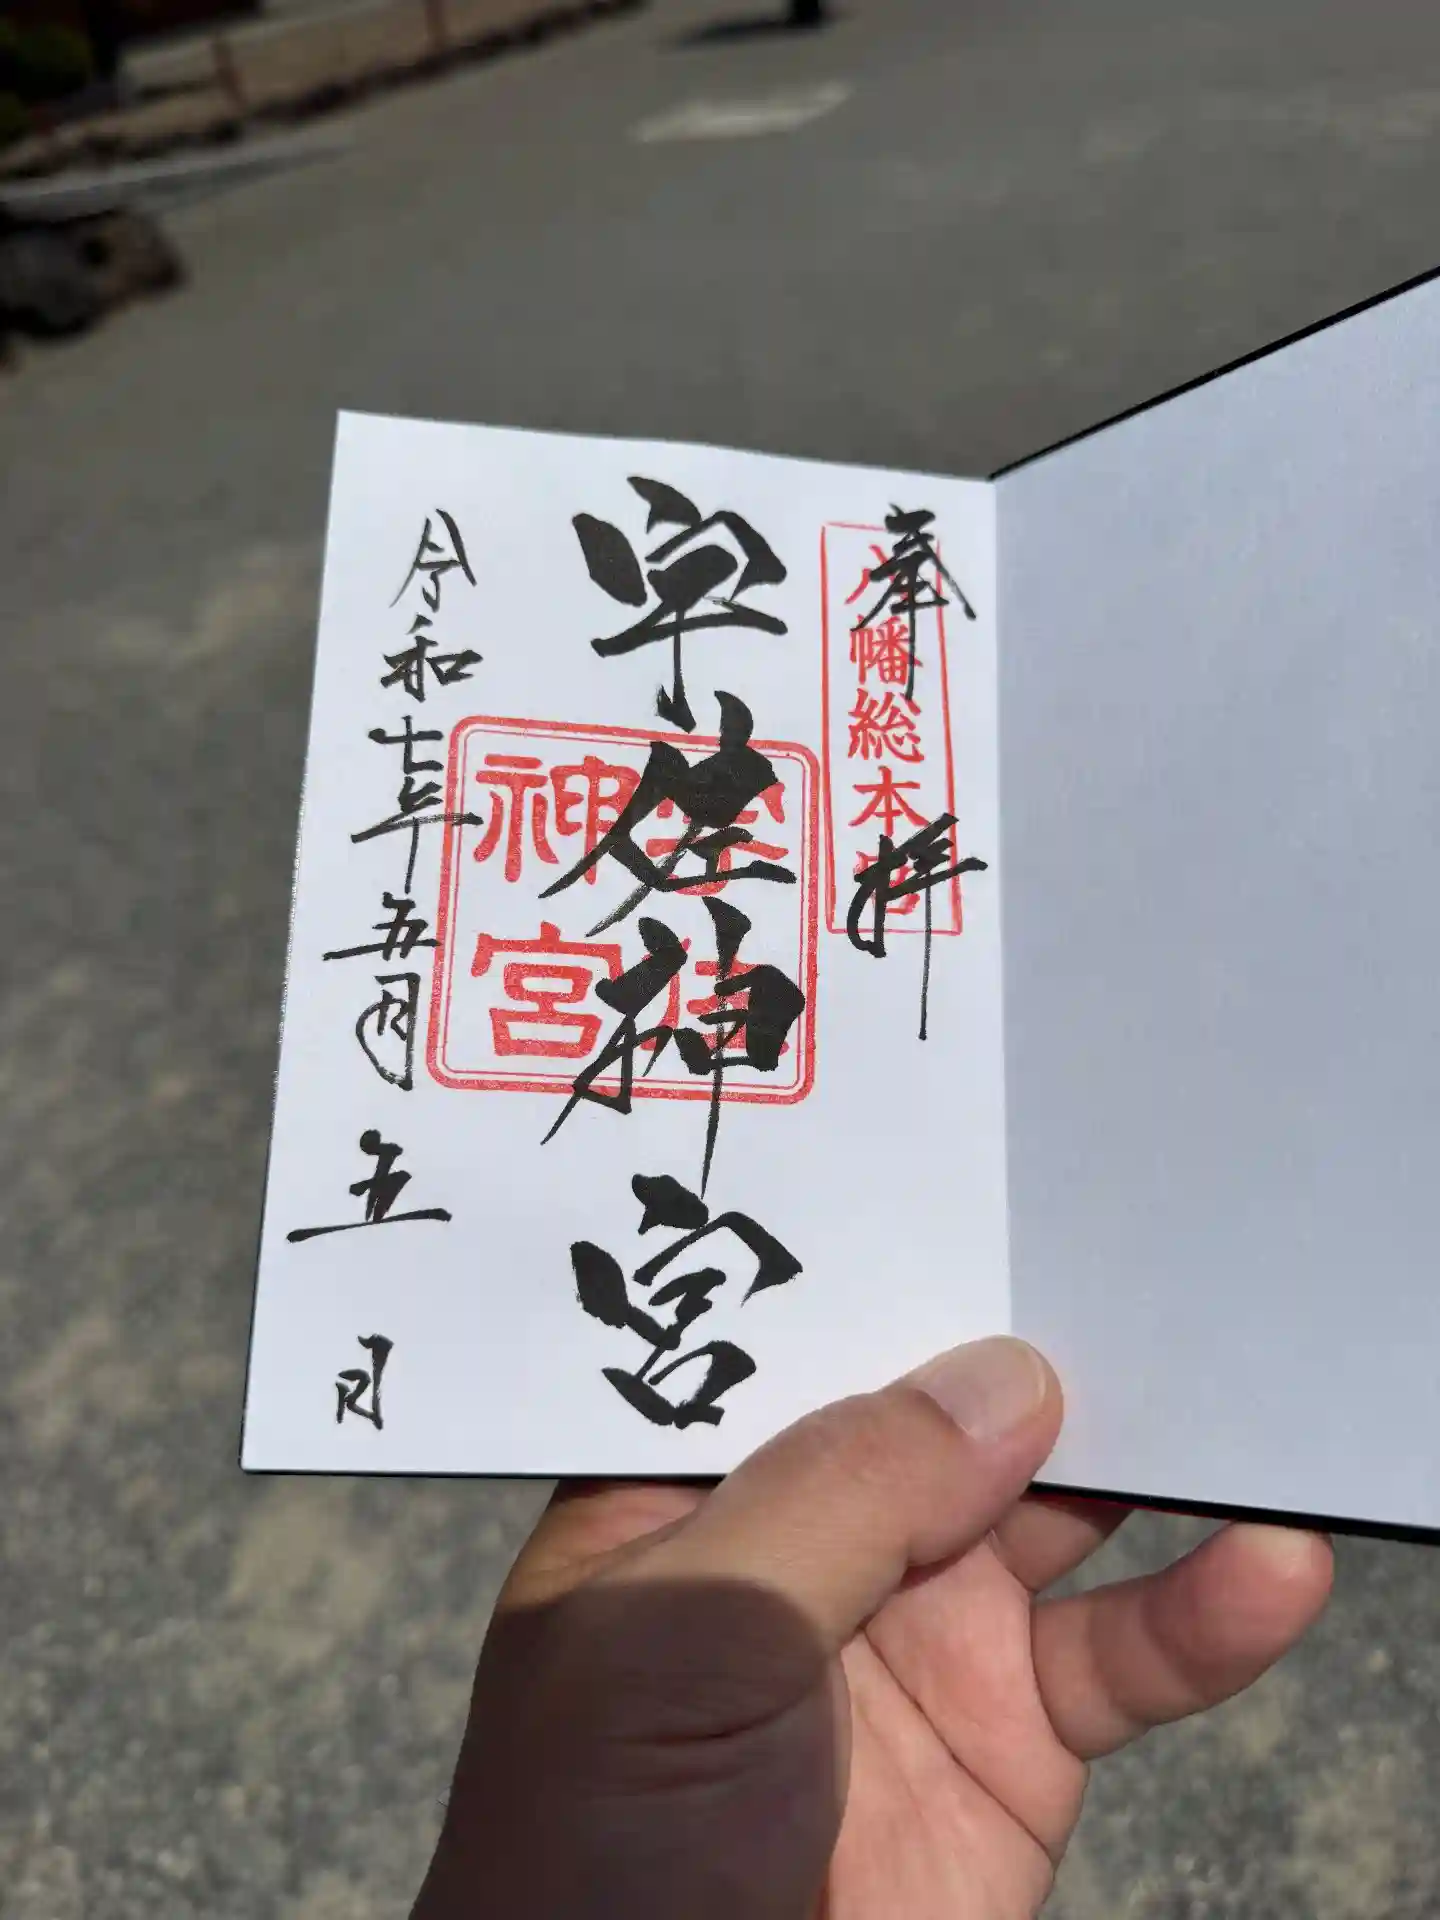 奉拝
八幡総本宮
宇佐神宮
宇佐
神宮
令和七年五月五日